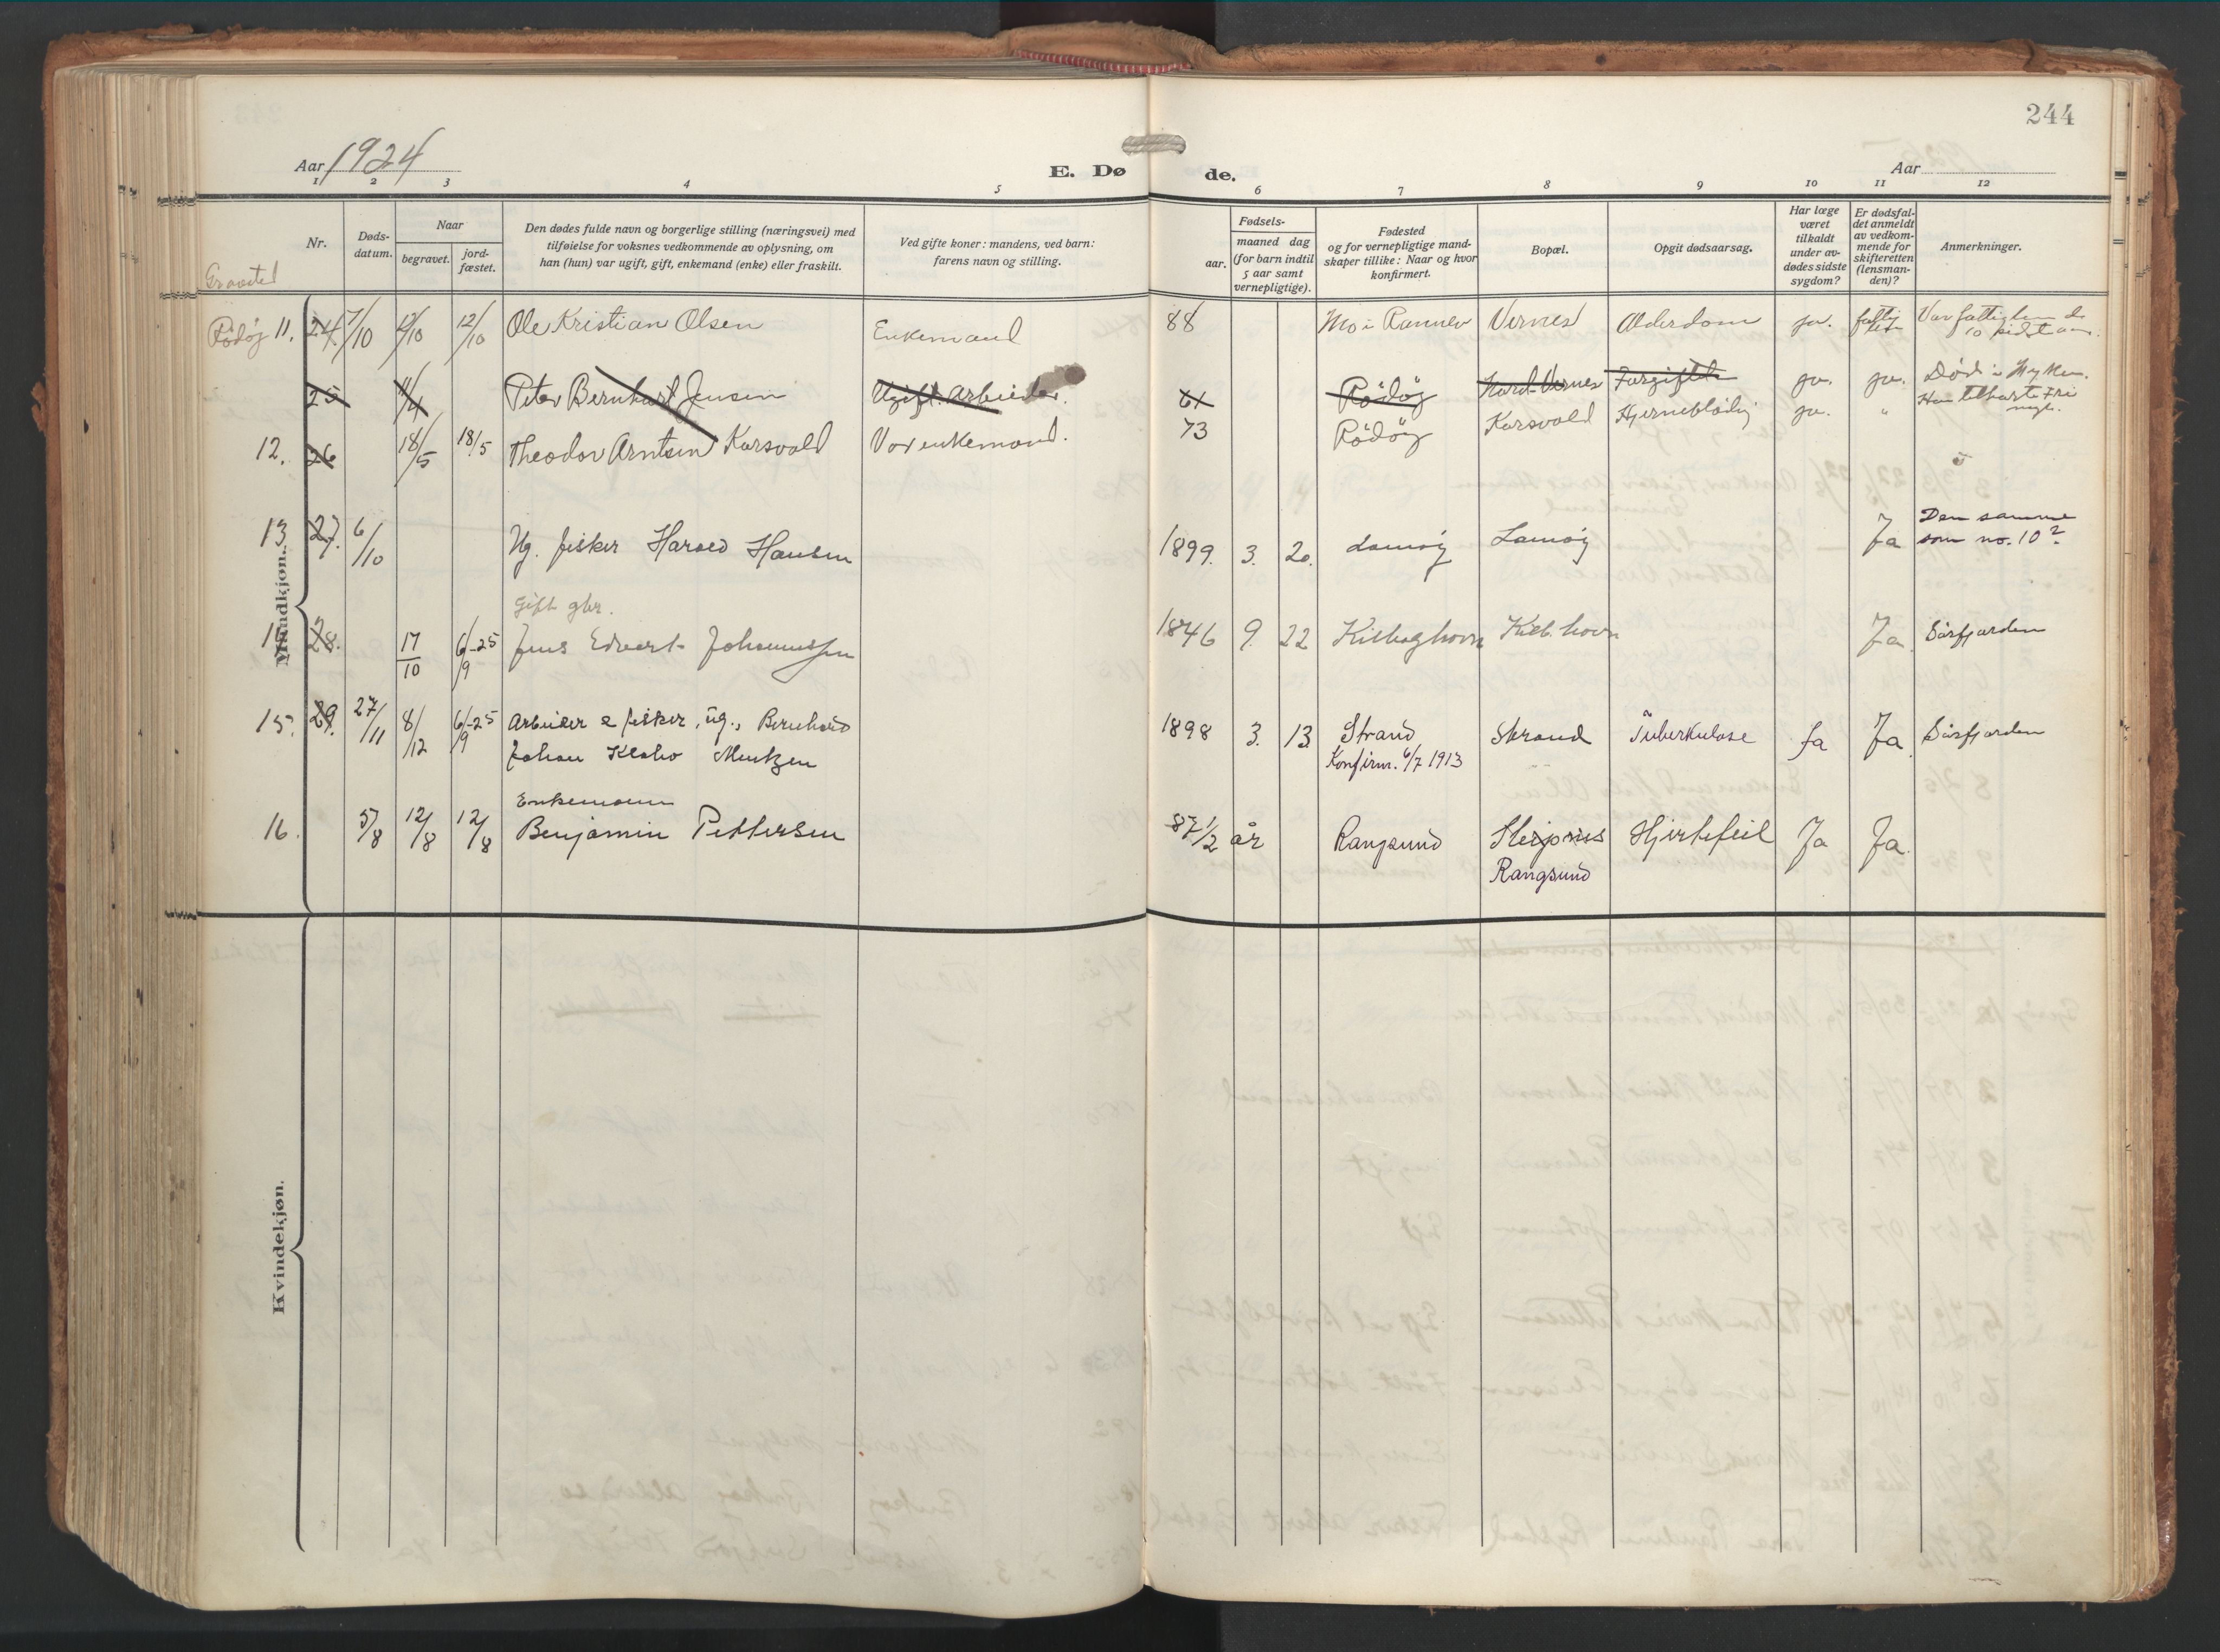 244
Aar 1924
E. Døde.
Aar
1 2 3 4 5 6 7 8 9 10 11 12
Gravsted
Nr.
Døds-
datum.
Naar
begravet.
jord-
fæstet.
Den dødes fulde navn og borgerlige stilling (næringsvei) med
tilføielse for voksnes vedkommende av oplysning, om
han (hun) var ugift, gift, enkemand (enke) eller fraskilt.
Ved gifte koner: mandens, ved barn:
farens navn og stilling.
Fødsels-
aar.
maaned dag
(for barn indtil
5 aar samt
vernepligtige).
Fødested
og for vernepligtige mand-
skaper tillike: Naar og hvor
konfirmert.
Bopæl.
Opgit dødsaarsag.
Har læge
været
tilkaldt
under av-
dødes sidste
sygdom?
Er dødsfal-
det anmeldt
av vedkom-
mende for
skifteretten
(lensman-
den)?
Anmerkninger.
Mandkjøn.
Rödöy 11. 24. 7/10 12/10 12/10 Ole Kristian Olsen Enkemand 88 Mo i Rannen Vernes Alderdom ja. Var fattiglem de
10 sidst aar.
25 11/4 Peter Bernhart Jensen Ugift. Arbeider. 61 Rödöy Nord-Vernes Forgiftet ja. ja. Død i Myken.
Han tilhørte Fri
megh.
12. 26 18/5 18/5 Theodor Arntsen Karsvold Var enkemand. 73 Rödöy Karsvold Hjerneblödig ja. "
13 27. 6/10 Ug. fisker Harald Hansen 1899. 3. 20. Lamöy Lamöy Ja Den samme
som no. 10?
Gift gbr.
14 28. 17/10 6/9-25 Jens Edvart Johannessen 1846 9. 22 Kilboghovn Kilb. hovn Ja Sörfjorden
15. 29. 27/11 8/12 6/9-25 Arbeider & fisker, ug., Bernhard
Johan Klabo Mentzen 1898 3. 13. Strand
Konfirm. 6/7 1913 Strand Tuberkulose Ja Ja Sörfjorden
Enkemann
16. 5/8 12/8 12/8 Benjamin Pettersen 87 1/2 år Rangsund
Rangsund Hjertefeil Ja Ja.
Kvindekjøn.